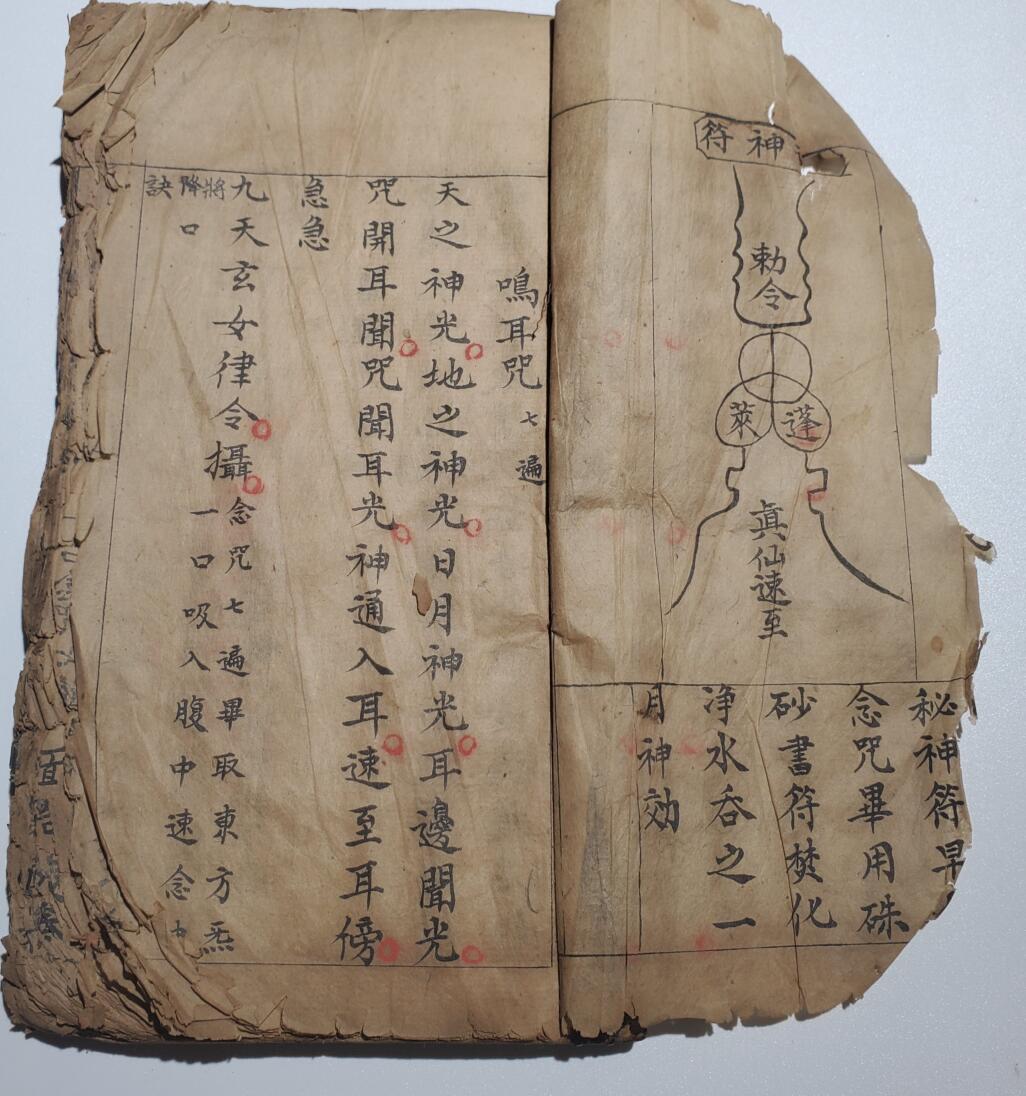 神符
勅令
蓬萊
真仙速至
秘神符早
念咒畢用硃
砂書符焚化
浄水吞之一
月神効
鳴耳咒 七遍
天之神光地之神光日月神光耳邊聞光
咒開耳聞咒聞耳光神通入耳速至耳傍
急急
九天玄女律令攝念咒七遍畢取東方炁
一口吸入腹中速念中
將降口
訣